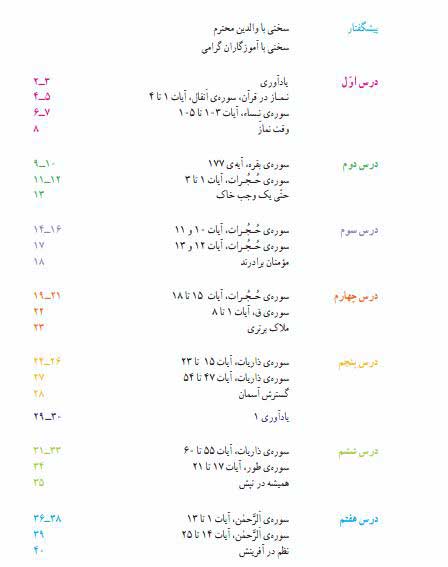 پیشگفتار سخنی با والدین محترم
سخنی با آموزگاران گرامی
درس اوّل یادآوری ۲_۳
نـمـاز در قرآن، سوره‌ی اَنفال، آیات ۱ تا ۴ ۴_۵
سوره‌ی نـساء، آیات ۱۰۳ تا ۱۰۵ ۶_۷
وقت نماز ۸
درس دوم سوره‌ی بقره، آیه‌ی ۱۷۷ ۹_۱۰
سوره‌ی حُـجُـرات، آیات ۱ تا ۳ ۱۱_۱۲
حتّی یک وجب خاک ۱۳
درس سوم سوره‌ی حُـجُـرات، آیات ۱۰ و ۱۱ ۱۴_۱۶
سوره‌ی حُـجُـرات، آیات ۱۲ و ۱۳ ۱۷
مؤمنان برادرند ۱۸
درس چهارم سوره‌ی حُـجُـرات، آیات ۱۵ تا ۱۸ ۱۹_۲۱
سوره‌ی ق، آیات ۱ تا ۸ ۲۲
ملاک برتری ۲۳
درس پنجم سوره‌ی ذاریات، آیات ۱۵ تا ۲۳ ۲۴_۲۶
سوره‌ی ذاریات، آیات ۴۷ تا ۵۴ ۲۷
گسترش آسمان ۲۸
یادآوری ۱ ۲۹_۳۰
درس ششم سوره‌ی ذاریات، آیات ۵۵ تا ۶۰ ۳۱_۳۳
سوره‌ی طور، آیات ۱۷ تا ۲۱ ۳۴
همیشه در تپش ۳۵
درس هفتم سوره‌ی اَلرَّحمٰن، آیات ۱ تا ۱۳ ۳۶_۳۸
سوره‌ی اَلرَّحمٰن، آیات ۱۴ تا ۲۵ ۳۹
نظم در آفرینش ۴۰